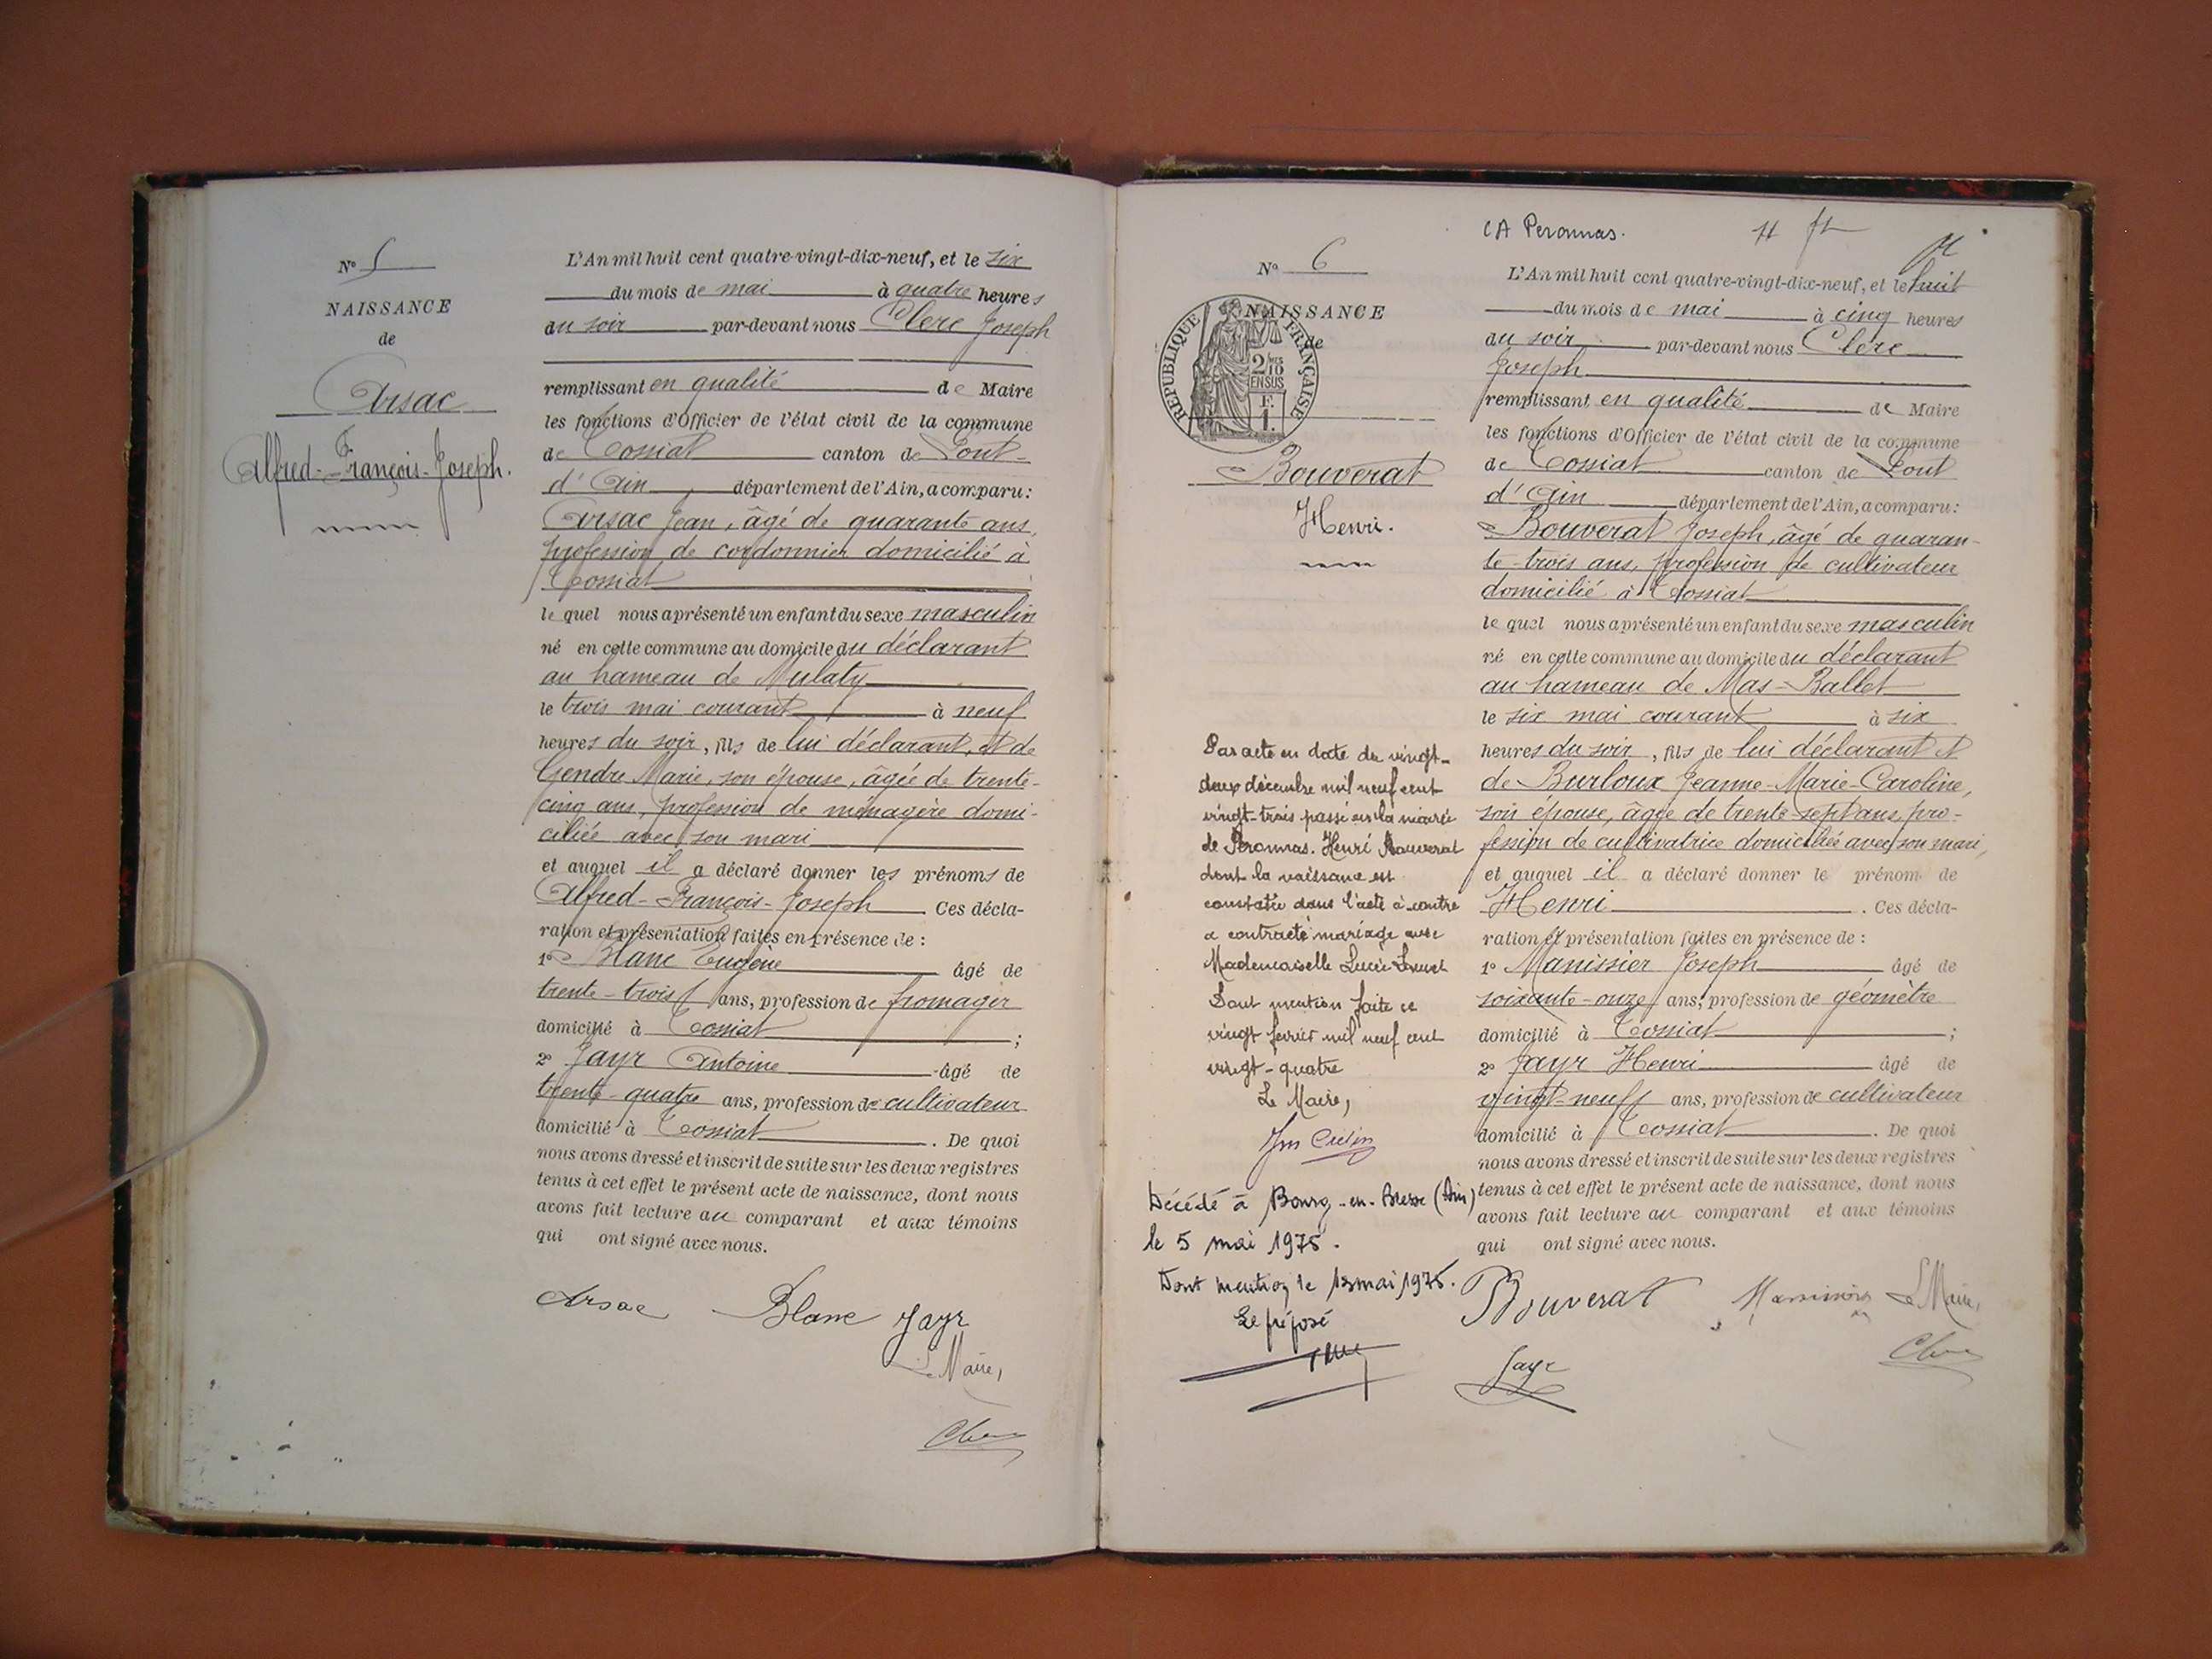 N° 5
NAISSANCE
de
Arsac
Alfred-François-Joseph.
L'An mil huit cent quatre-vingt-dix-neuf, et le six
du mois de mai à quatre heures
du soir par-devant nous Clerc Joseph
remplissant en qualité de Maire
les fonctions d'Officier de l'état civil de la commune
de Tossiat canton de Pont-
d'Ain département de l'Ain, a comparu:
Arsac Jean, âgé de quarante ans,
profession de cordonnier domicilié à
Tossiat
le quel nous a présenté un enfant du sexe masculin
né en cette commune au domicile du déclarant
au hameau de Mulaty
le trois mai courant à neuf
heures du soir, fils de lui déclarant, et de
Gendre Marie, son épouse, âgée de trente-
cinq ans, profession de ménagère domi-
ciliée avec son mari
et auquel il a déclaré donner les prénoms de
Alfred-François-Joseph Ces décla-
ration et présentation faites en présence de:
1° Blanc Eugène âgé de
trente-trois ans, profession de fromager
domicilié à Tossiat;
2° Jayr Antoine âgé de
trente-quatre ans, profession de cultivateur
domicilié à Tossiat. De quoi
nous avons dressé et inscrit de suite sur les deux registres
tenus à cet effet le présent acte de naissance, dont nous
avons fait lecture au comparant et aux témoins
qui ont signé avec nous.
Arsac Blanc Jayr
Le Maire,
Clerc
CA Peronnas.
N° 6
NAISSANCE
de
RÉPUBLIQUE FRANÇAISE
2/10 EN SUS
F. 1.
Bouverat
Henri.
Par acte en date du vingt-
deux décembre mil neuf cent
vingt-trois passé en la mairie
de Péronnas. Henri Bouverat
dont la naissance est
constatée dans l'acte ci-contre
a contracté mariage avec
Mademoiselle Lucie
Dont mention faite ce
vingt fevrier mil neuf cent
vingt-quatre
Le Maire,
Décédé à Bourg-en-Bresse (Ain)
le 5 mai 1975.
Dont mention le 13 mai 1975.
Le préposé
L'An mil huit cent quatre-vingt-dix-neuf, et le huit
du mois de mai à cinq heures
du soir par-devant nous Clerc
Joseph
remplissant en qualité de Maire
les fonctions d'Officier de l'état civil de la commune
de Tossiat canton de Pont
d'Ain département de l'Ain, a comparu:
Bouverat Joseph, âgé de quaran-
te-trois ans, profession de cultivateur
domicilié à Tossiat
le quel nous a présenté un enfant du sexe masculin
né en cette commune au domicile du déclarant
au hameau de Mas-Ballet
le six mai courant à six
heures du soir, fils de lui déclarant et
de Burloux Jeanne-Marie-Caroline,
son épouse, âgée de trente-sept ans, pro-
fession de cultivatrice domiciliée avec son mari,
et auquel il a déclaré donner le prénom de
Henri. Ces décla-
ration et présentation faites en présence de:
1° Manissier Joseph âgé de
soixante-onze ans, profession de géomètre
domicilié à Tossiat;
2° Jayr Henri âgé de
vingt-neuf ans, profession de cultivateur
domicilié à Tossiat. De quoi
nous avons dressé et inscrit de suite sur les deux registres
tenus à cet effet le présent acte de naissance, dont nous
avons fait lecture au comparant et aux témoins
qui ont signé avec nous.
Bouverat Manissier Le Maire,
Jayr Clerc